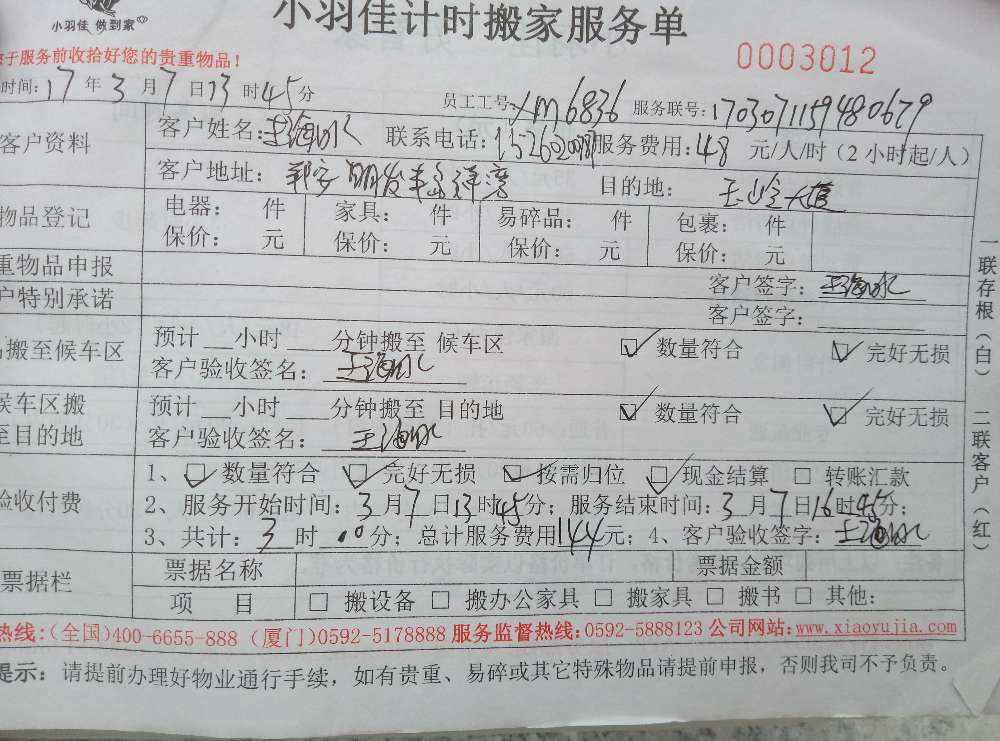 小羽佳 做到家
小羽佳计时搬家服务单
于服务前收拾好您的贵重物品！
0003012
时间：17年3月7日13时45分 员工工号：XM6836 服务联号：1703071159480679
客户资料 客户姓名：王海冰 联系电话： 服务费用：48元/人/时（2小时起/人）
客户地址： 目的地：
物品登记 电器： 件 家具： 件 易碎品： 件 包裹： 件
保价： 元 保价： 元 保价： 元 保价： 元
重物品申报 客户签字：王海冰
户特别承诺 客户签字：
搬至候车区 预计__小时____分钟搬至 候车区 ☑ 数量符合 ☑ 完好无损
客户验收签名：王海冰
候车区搬 预计__小时____分钟搬至 目的地 ☑ 数量符合 ☑ 完好无损
至目的地 客户验收签名：王海冰
1、☑ 数量符合 ☑ 完好无损 ☑ 按需归位 ☑ 现金结算 □ 转账汇款
验收付费 2、服务开始时间：3月7日13时45分；服务结束时间：3月7日16时45分；
3、共计：3时00分；总计服务费用144元；4、客户验收签字：王海冰
票据栏 票据名称 票据金额
项 目 □ 搬设备 □ 搬办公家具 □ 搬家具 □ 搬书 □ 其他：
热线：（全国）400-6655-888（厦门）0592-5178888 服务监督热线：0592-5888123 公司网站：www.xiaoyujia.com
提示：请提前办理好物业通行手续，如有贵重、易碎或其它特殊物品请提前申报，否则我司不予负责。
一联存根（白） 二联客户（红）